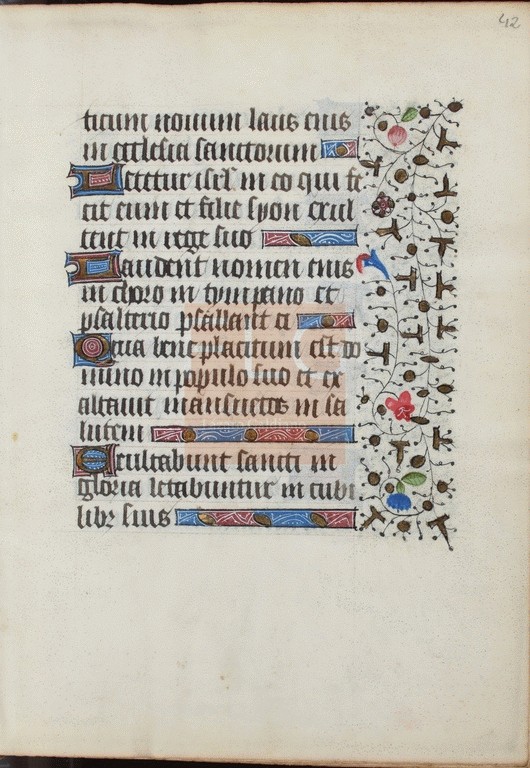 42
ticum novum laus eius
in ecclesia sanctorum
Letetur isrl in eo qui fe
cit eum et filie syon exul
tent in rege suo
Laudent nomen eius
in choro in tympano et
psalterio psallant ei
Quia bene placitum est do
mino in populo suo et ex
altavit mansuetos in sa
lutem
Exultabunt sancti in
gloria letabuntur in cubi
libz suis